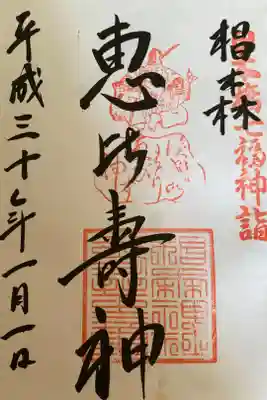 椙森
七福神詣
恵比寿神
平成三十年一月一日